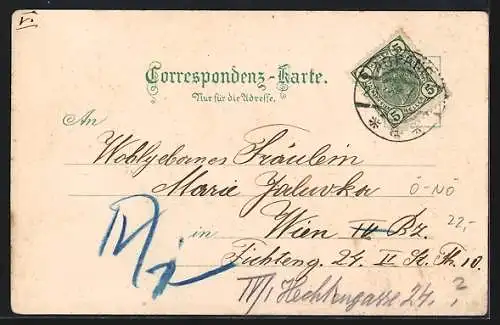 V.
Correspondenz-Karte.
Nur für die Adresse.
5 5 5
An
Wohlgebornes Fräulein
Marie Jaluvka
Ö-NÖ
22,-
in Wien IV Bz.
Fichteng. 24. II St. Th. 10.
IV/1 Hechtengasse 24. ?